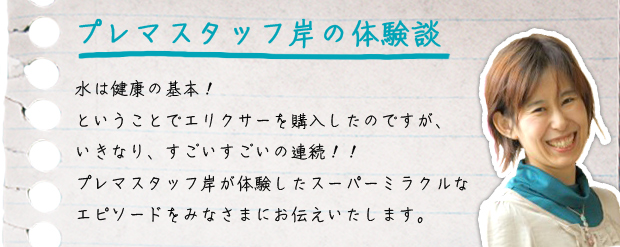 プレマスタッフ岸の体験談
水は健康の基本！
ということでエリクサーを購入したのですが、
いきなり、すごいすごいの連続！！
プレマスタッフ岸が体験したスーパーミラクルな
エピソードをみなさまにお伝えいたします。